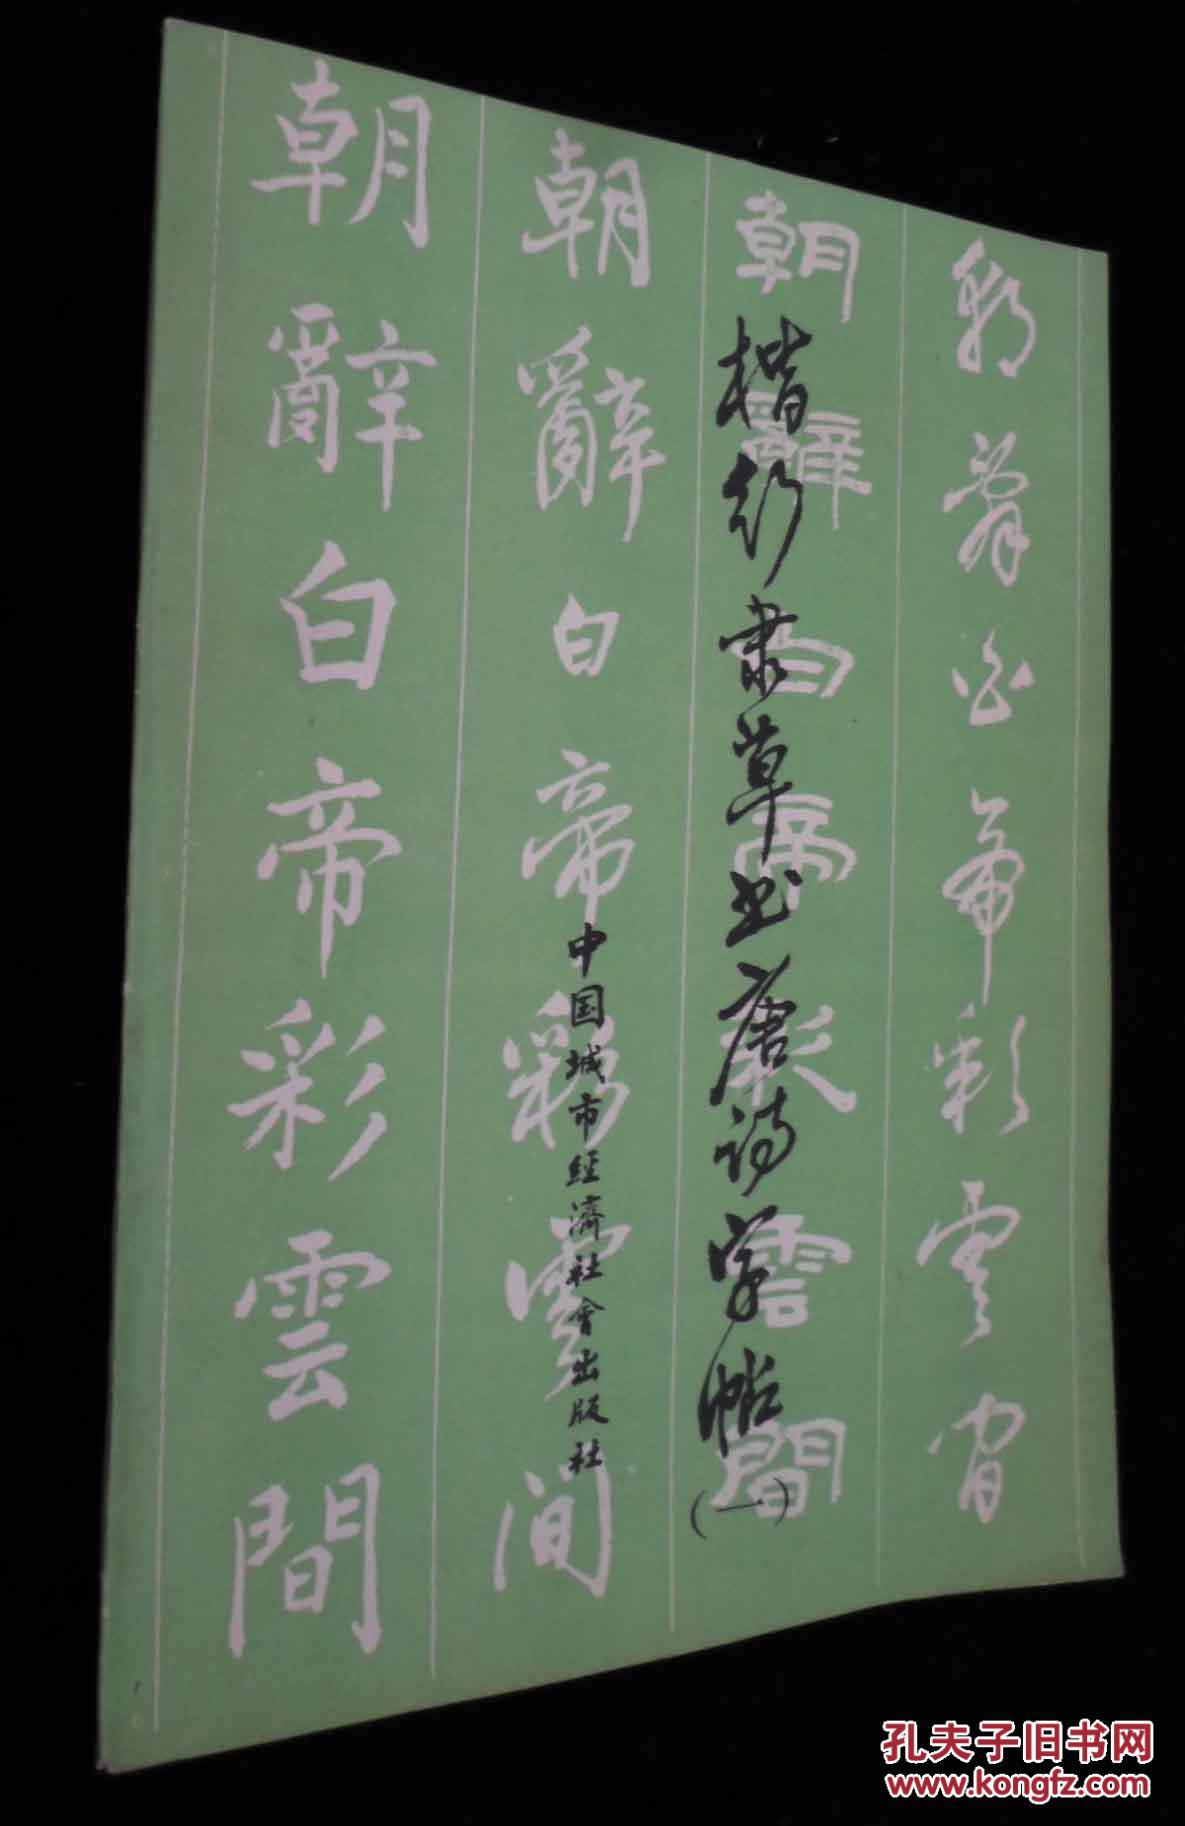 朝辭白帝彩雲間
朝辭白帝彩雲間
朝辭白帝彩雲間
朝辭白帝彩雲間
楷行隶草书唐诗字帖(一)
中国城市經濟社會出版社
孔夫子旧书网
www.kongfz.com